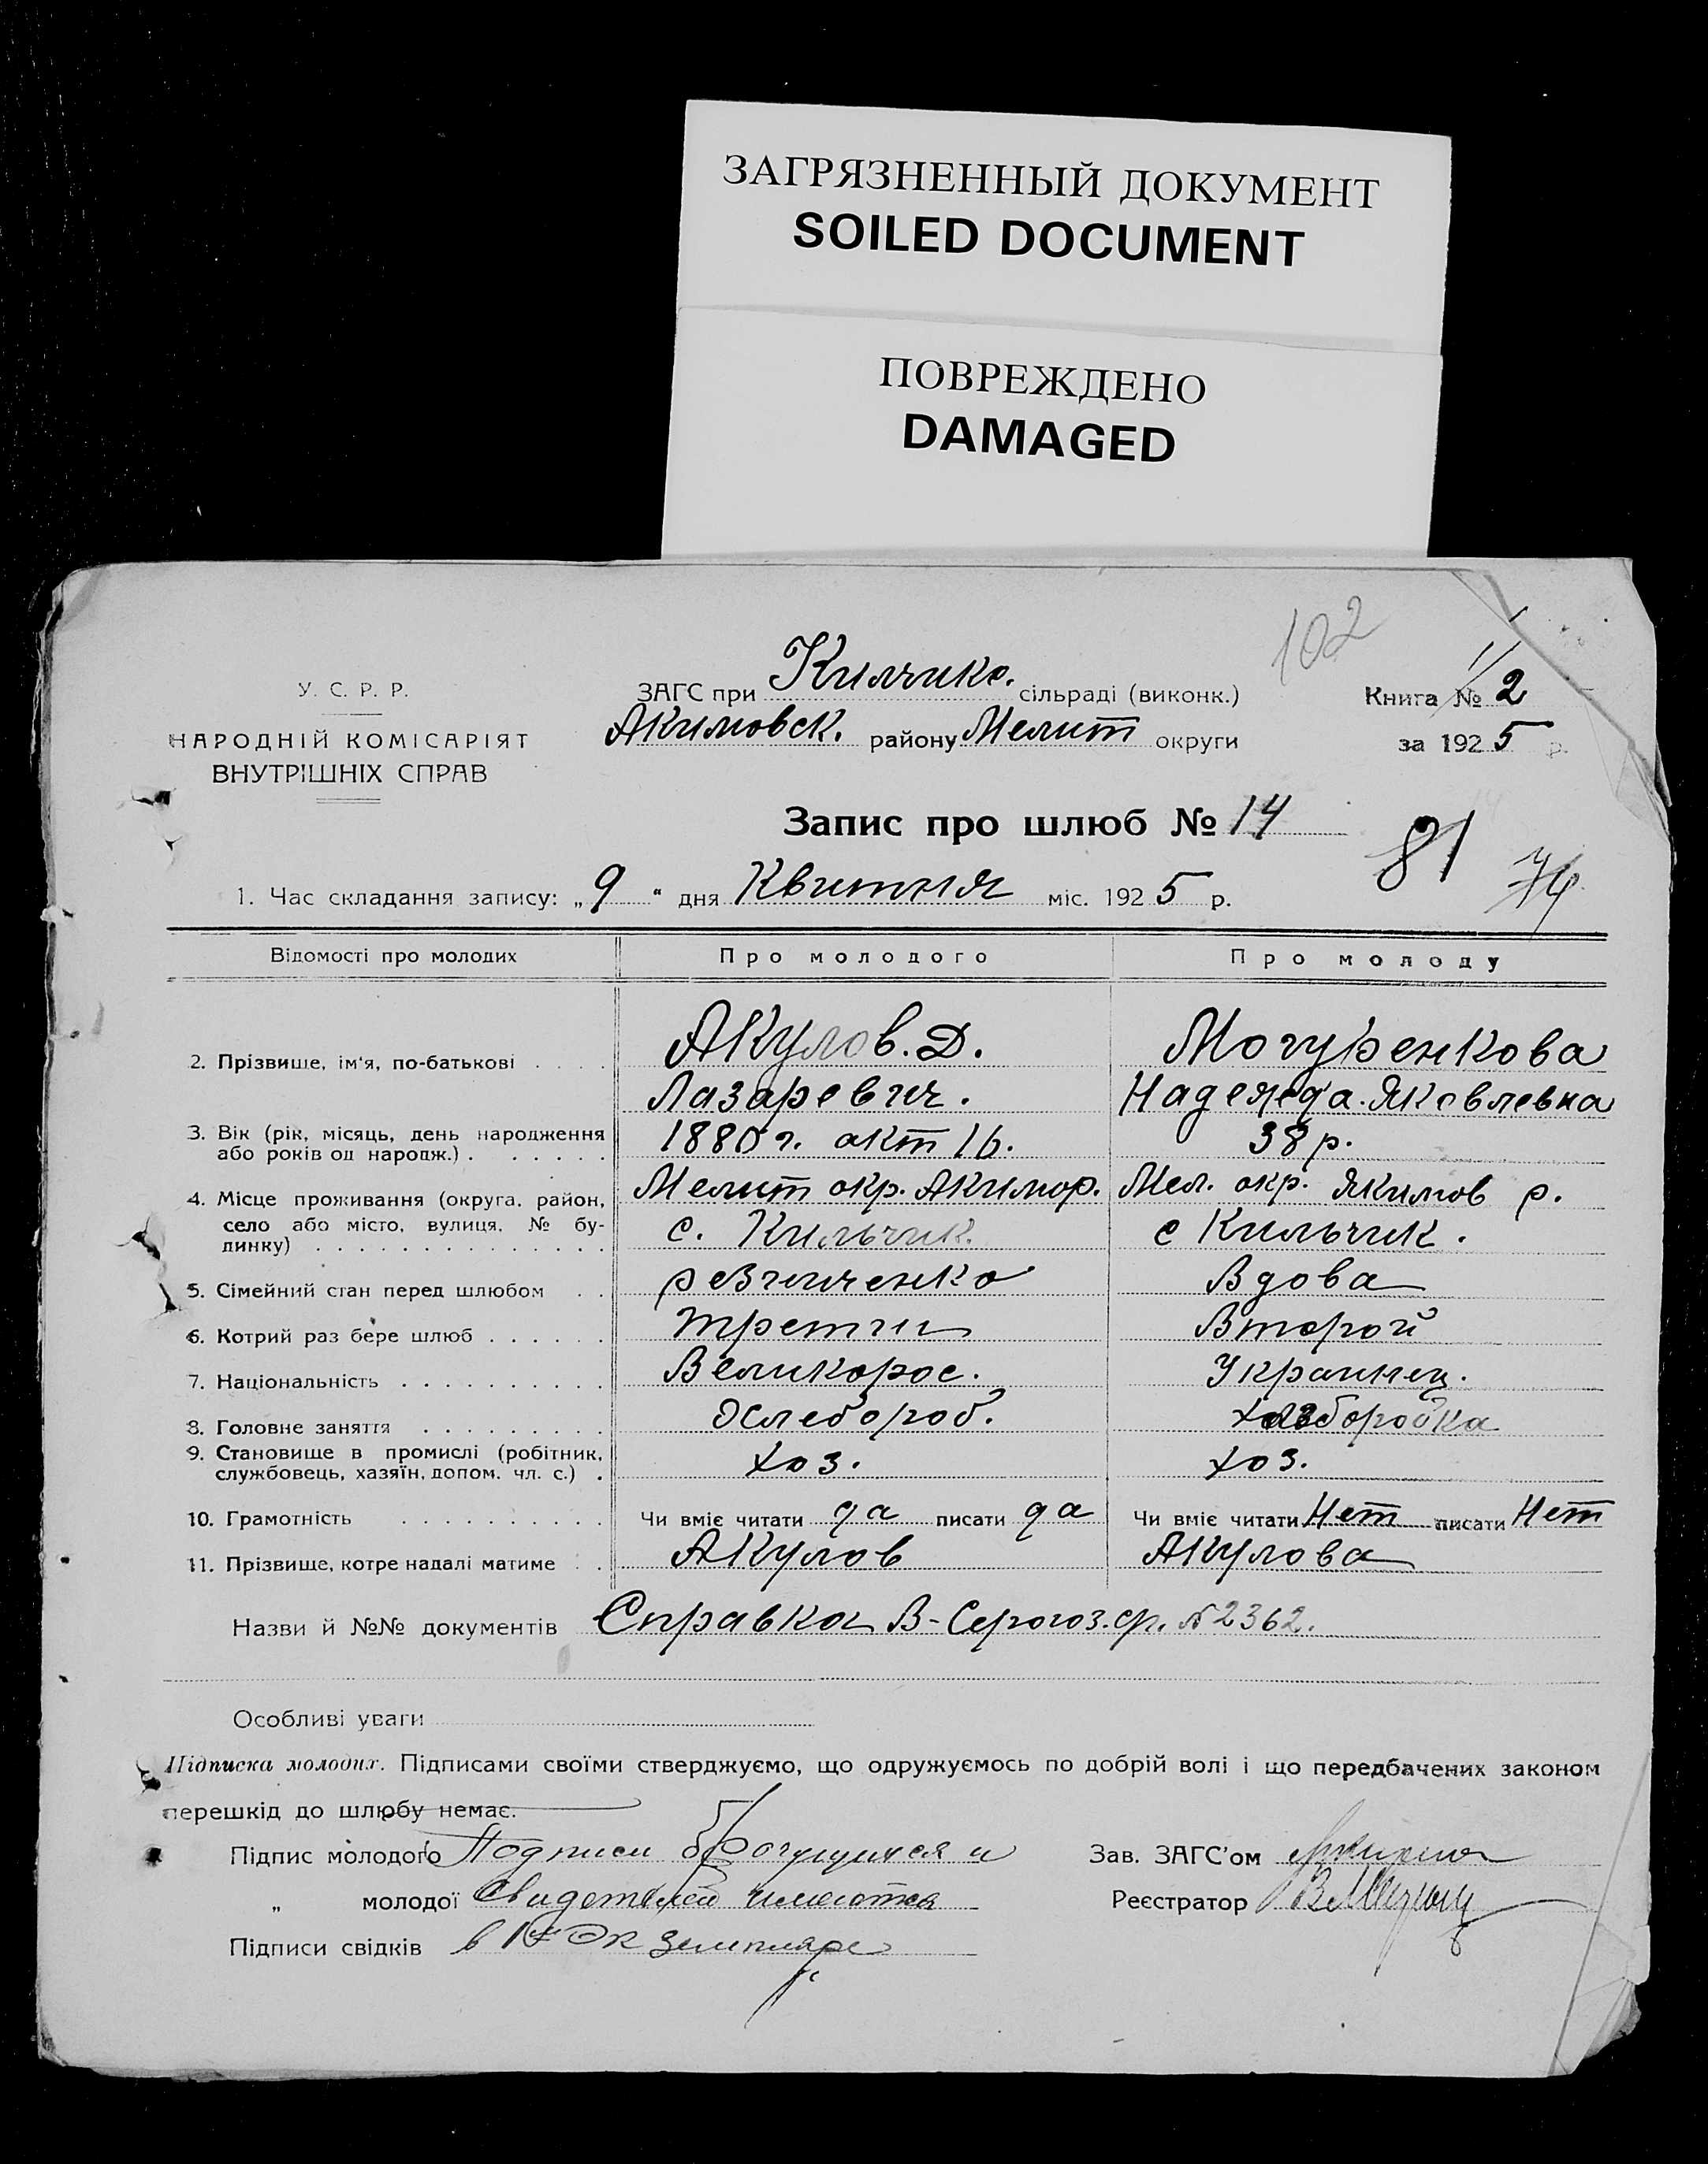 ЗАГРЯЗНЕННЫЙ ДОКУМЕНТ
SOILED DOCUMENT
ПОВРЕЖДЕНО
DAMAGED
102
У. С. Р. Р.
НАРОДНІЙ КОМІСАРІЯТ
ВНУТРІШНІХ СПРАВ
ЗАГС при Килчико. сільраді (виконк.)
Акимовск. району Мелит округи
Книга № 2
за 1925 р.
Запис про шлюб № 14
81
74
1. Час складання запису: „9“ дня Квитня міс. 1925 р.
Відомості про молодих Про молодого Про молоду
2. Прізвище, ім'я, по-батькові . . . . Акулов. Д. Могуренкова
Лазаревич. Надежда. Яковлевна
3. Вік (рік, місяць, день народження або років од народж.) . . . . . . 1880 г. окт 16. 38 р.
4. Місце проживання (округа, район, село або місто, вулиця, № будинку) . . . Мелит окр. Акимор. Мел. окр. Якимов р.
с. Кильчик. с Кильчик.
5. Сімейний стан перед шлюбом . . Вдова
6. Котрий раз бере шлюб . . . . . . третии Второй
7. Національність . . . . . . . . . . Великорос. Украинец.
8. Головне заняття . . . . . . . . . Хлебороб.
9. Становище в промислі (робітник, службовець, хазяїн, допом. чл. с.) . хоз. хоз.
10. Грамотність . . . . . . . . . . Чи вміє читати да писати да Чи вміє читати Нет писати Нет
11. Прізвище, котре надалі матиме . . Акулов Акулова
Назви й №№ документів Справка В-Серогоз. ср. № 2362.
Особливі уваги
Підписка молодих. Підписами своїми стверджуємо, що одружуємось по добрій волі і що передбачених законом
перешкід до шлюбу немає.
Підпис молодого Подписи брачущихся и
„ молодої Свидетелей имеются
Підписи свідків в 1м Экземпляре
Зав. ЗАГС'ом
Реєстратор